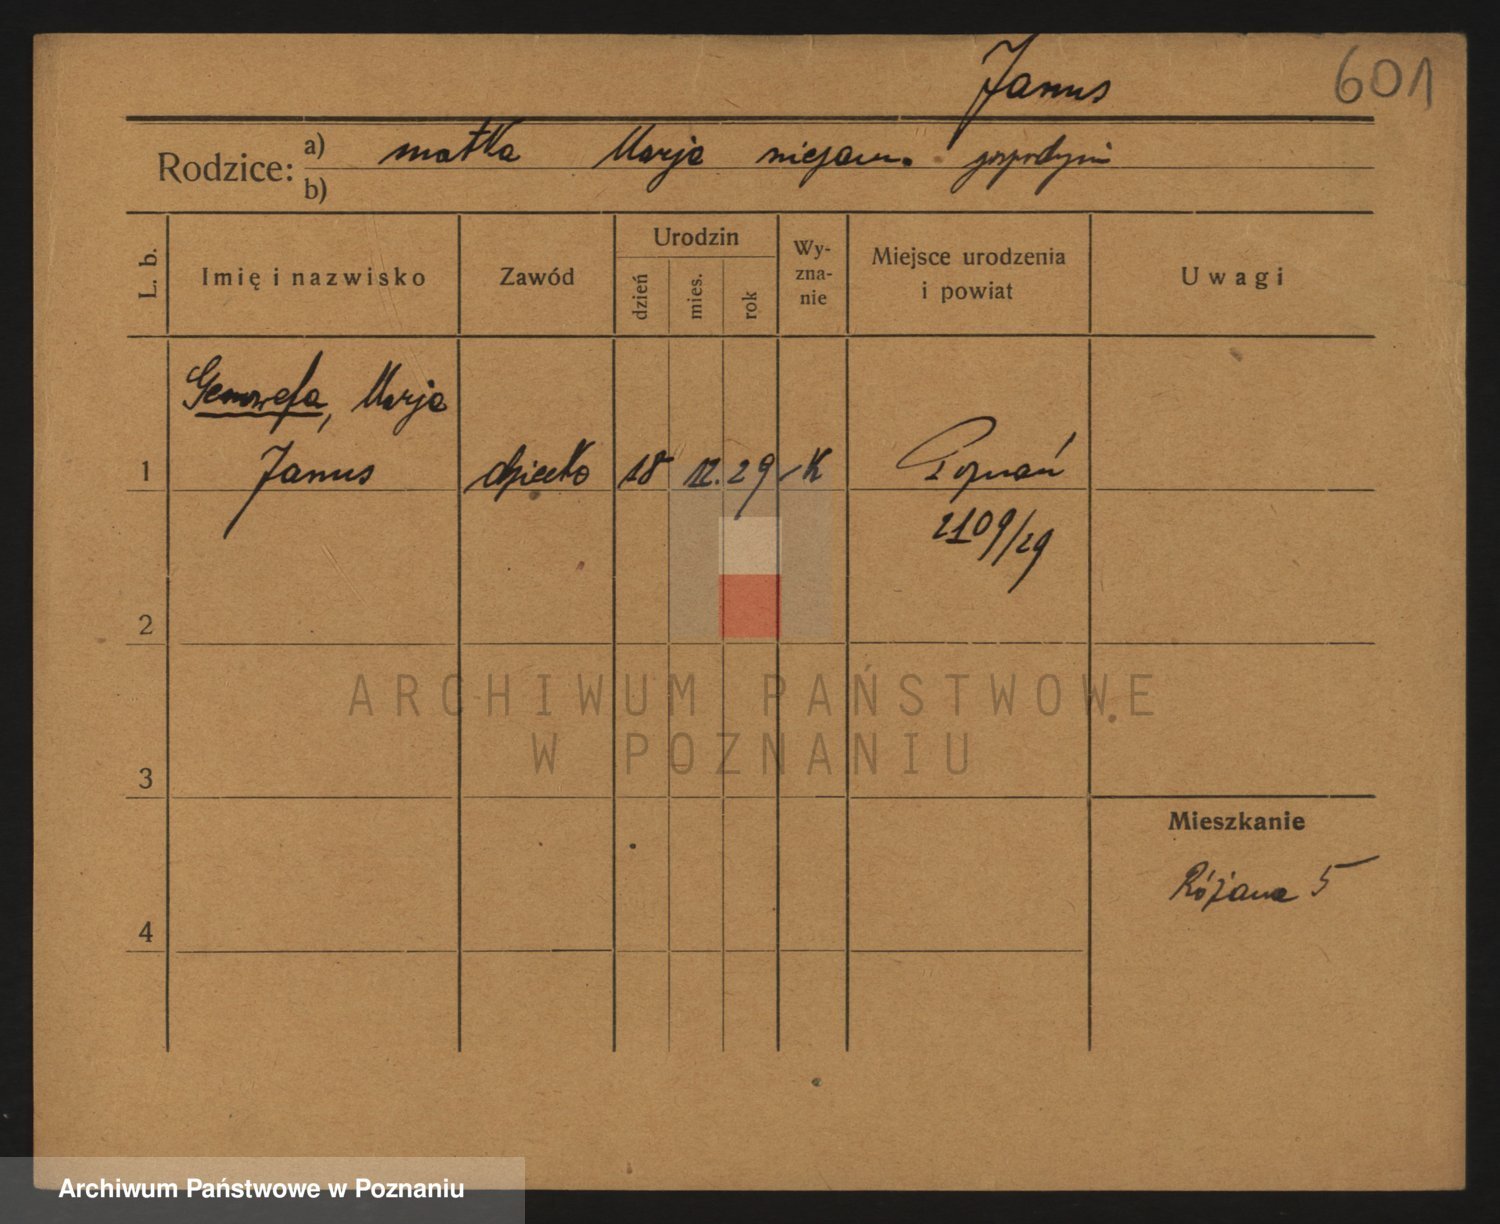 Janus
601
Rodzice: a) matka Marja niezam. gospodyni
b)
L. b.
Imię i nazwisko
Zawód
Urodzin
dzień
mies.
rok
Wy-
zna-
nie
Miejsce urodzenia
i powiat
Uwagi
Genowefa, Marja
1 Janus dziecko 18 12. 29 K Poznań
2109/29
2
ARCHIWUM PAŃSTWOWE
W POZNANIU
3
Mieszkanie
Różana 5
4
Archiwum Państwowe w Poznaniu